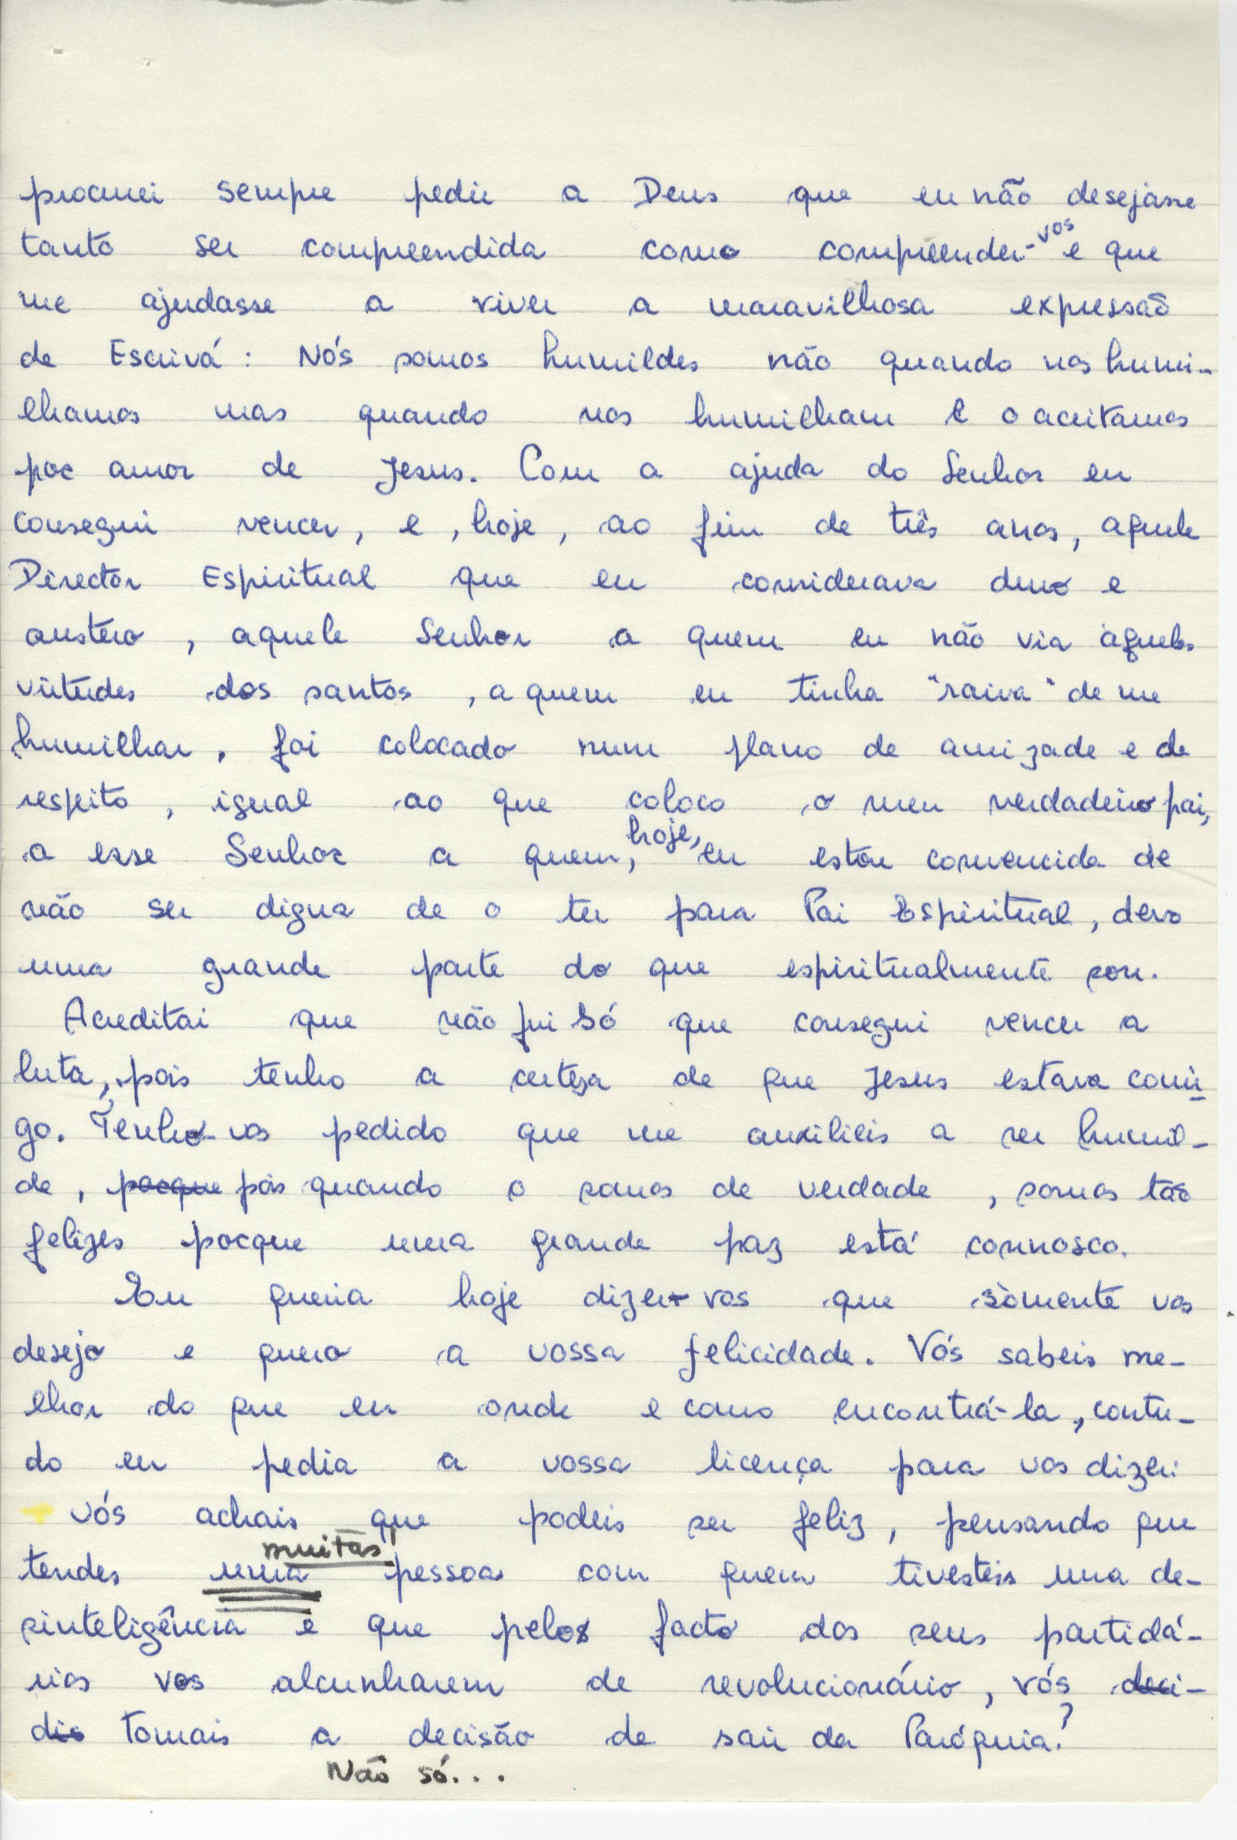 procurei sempre pedir a Deus que eu não desejasse
tanto ser compreendida como compreender-vos e que
me ajudasse a viver a maravilhosa expressão
de Escrivá: Nós somos humildes não quando nos humi-
lhamos mas quando nos humilham e o aceitamos
por amor de Jesus. Com a ajuda do Senhor eu
consegui vencer, e, hoje, ao fim de três anos, aquele
Director Espiritual que eu considerava duro e
austero, aquele Senhor a quem eu não via aquelas
virtudes dos santos, a quem eu tinha "raiva" de me
humilhar, foi colocado num plano de amizade e de
respeito, igual ao que coloco o meu verdadeiro pai,
a esse Senhor a quem, hoje, eu estou convencida de
não ser digna de o ter para Pai Espiritual, devo
uma grande parte do que espiritualmente sou.
Acreditai que não fui só que consegui vencer a
luta, pois tenho a certeza de que Jesus estava comi
go. Tenho-vos pedido que me auxilieis a ser humil-
de, porque pois quando o somos de verdade, somos tão
felizes porque uma grande paz está connosco.
Eu queria hoje dizer-vos que sòmente vos
desejo e quero a vossa felicidade. Vós sabeis me-
lhor do que eu onde e como encontrá-la, contu-
do eu pedia a vossa licença para vos dizer:
vós achais que podeis ser feliz, pensando que
muitas
tendes uma pessoas com quem tivesteis uma de-
sinteligência e que pelos facto dos seus partidá-
rios vos alcunharem de revolucionário, vós deci-
dis tomais a decisão de sair da Paróquia?
Não só...